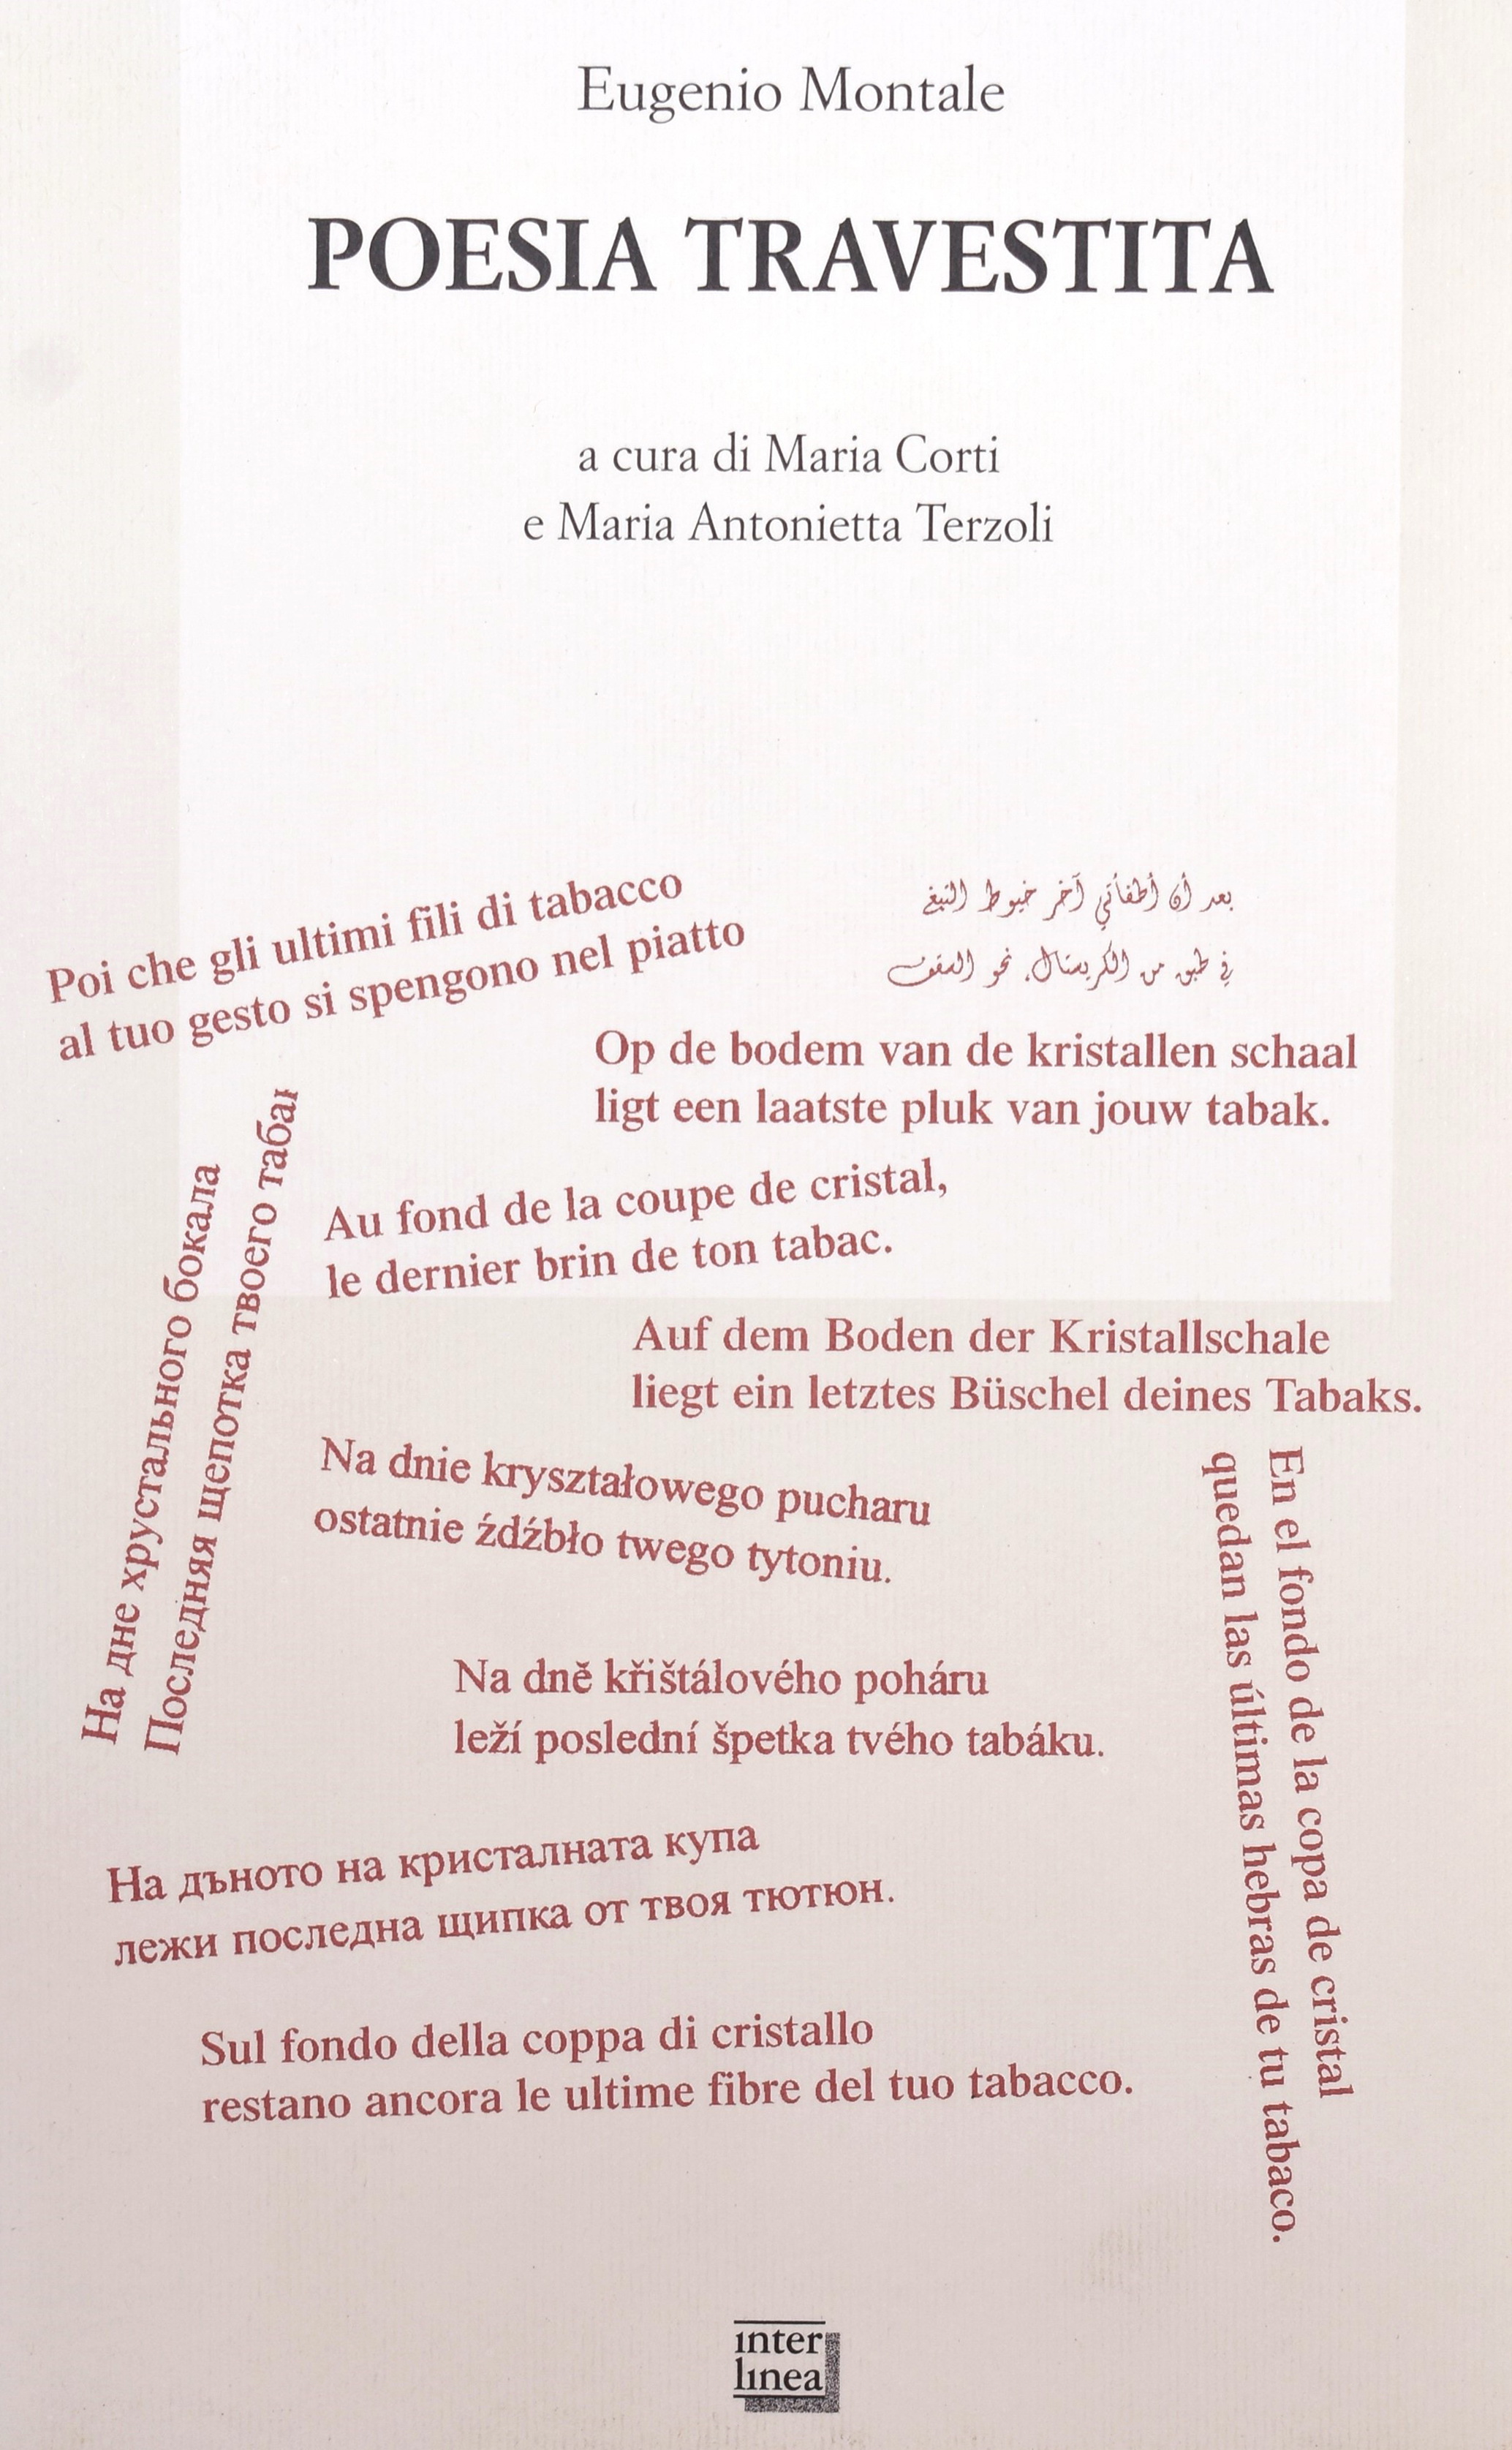 Eugenio Montale
POESIA TRAVESTITA
a cura di Maria Corti
e Maria Antonietta Terzoli
Poi che gli ultimi fili di tabacco
al tuo gesto si spengono nel piatto
بعد أن أطفأتي آخر خيوط التبغ
في طبق من الكريستال، نحو السقف
Op de bodem van de kristallen schaal
ligt een laatste pluk van jouw tabak.
На дне хрустального бокала
Последняя щепотка твоего
Au fond de la coupe de cristal,
le dernier brin de ton tabac.
Auf dem Boden der Kristallschale
liegt ein letztes Büschel deines Tabaks.
Na dnie kryształowego pucharu
ostatnie źdźbło twego tytoniu.
En el fondo de la copa de cristal
quedan las últimas hebras de tu tabaco.
Na dně křištálového poháru
leží poslední špetka tvého tabáku.
На дъното на кристалната купа
лежи последна щипка от твоя тютюн.
Sul fondo della coppa di cristallo
restano ancora le ultime fibre del tuo tabacco.
inter
linea